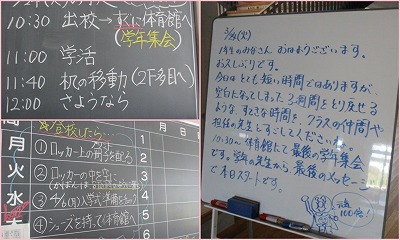 10:30 出校→すぐに体育館へ
(学年集会)
11:00 学活
11:40 机の移動(2F多目へ)
12:00 さようなら
登校したら
月
火
水
1
2
3
4
5
6
①ロッカー上の荷物を
②ロッカーの中を
③4/6(月)入学式準備
④シューズを持って体育館へ
3/24(火)
1年生のみなさん おはようございます。
お久しぶりです。
今日はとても短い時間ではありますが、
空白となってしまった3週間をとり戻せる
ような、すてきな時間を、クラスの仲間や
担任の先生とすごしてくださいね。
10:30から体育館にて最後の学年集会
です。学年の先生から最後のメッセージ
で本日スタートです。
100点!